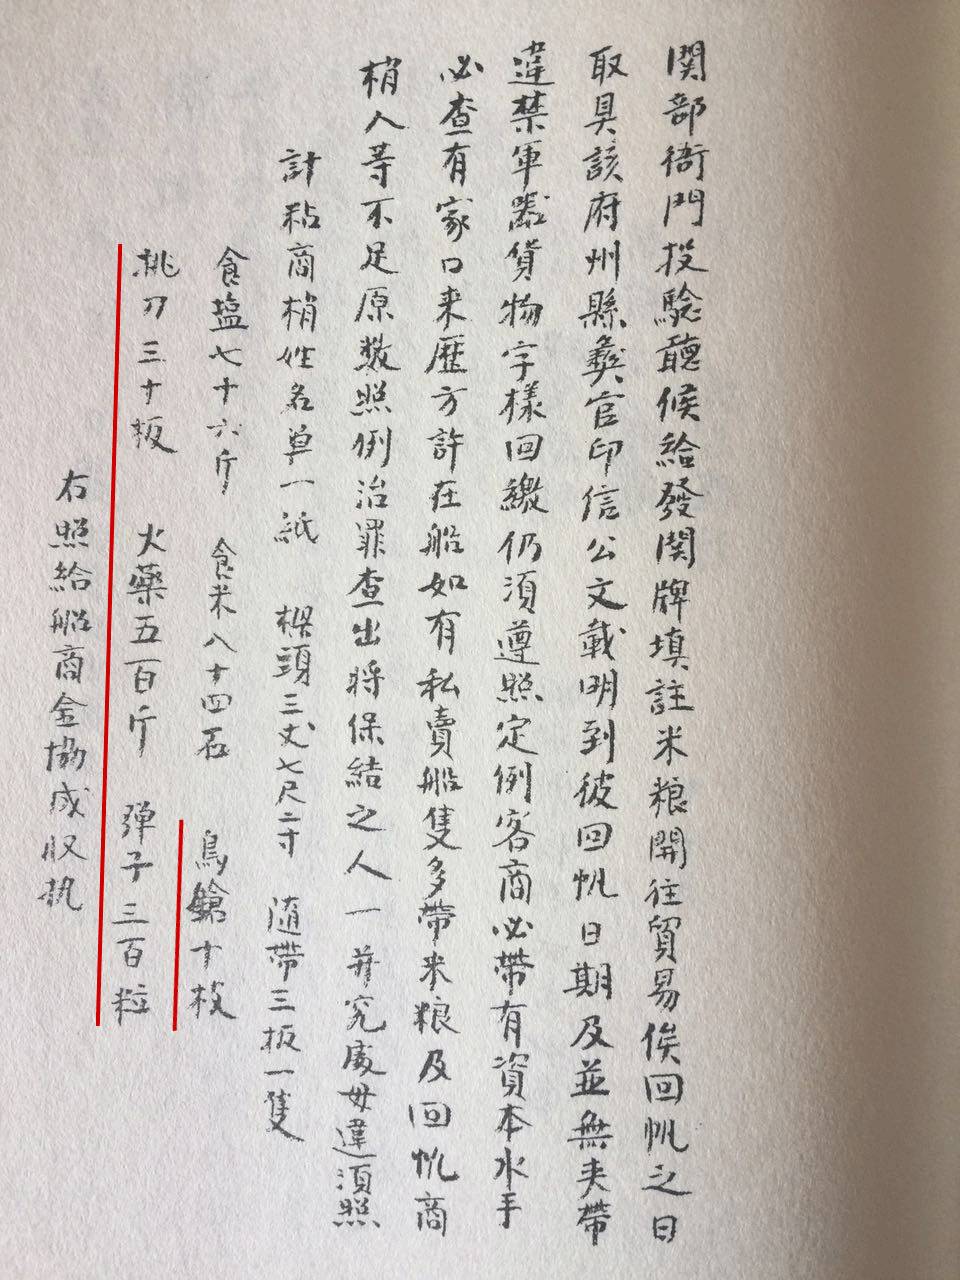 関部衙門投騐聽候給發関牌填註米粮開往貿易俟回帆之日
取具該府州縣彝官印信公文載明到彼回帆日期及並無夹帶
違禁軍器貨物字樣回繳仍須遵照定例客商必帶有資本水手
必查有家口来歷方許在船如有私賣船隻多帶米粮及回帆商
梢人等不足原数照例治罪查出將保結之人一并究處毋違須照
計粘商梢姓名单一紙 樑頭三丈七尺二寸 随帶三板一隻
食塩七十六斤 食米八十四石 鳥鎗十枝
挑刀三十板 火藥五百斤 弹子三百粒
右照給船商金協成収执